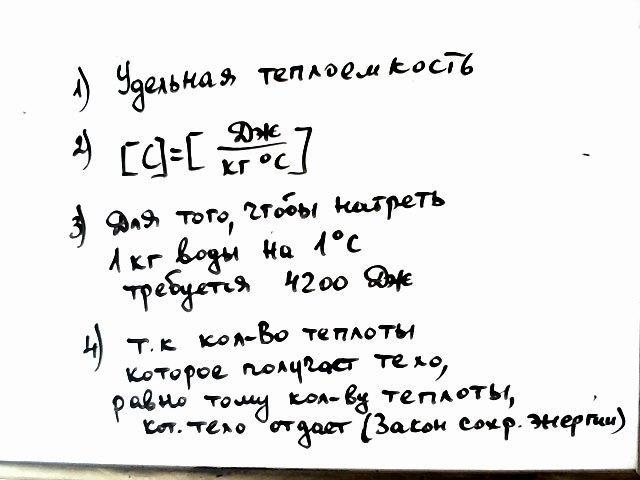 1) Удельная теплоемкость
2) [C]=[Дж/кг °C]
3) Для того, чтобы нагреть
1 кг воды на 1°C
требуется 4200 Дж
4) т.к кол-во теплоты
которое получает тело,
равно тому кол-ву теплоты,
кот. тело отдает (Закон сохр. энергии)